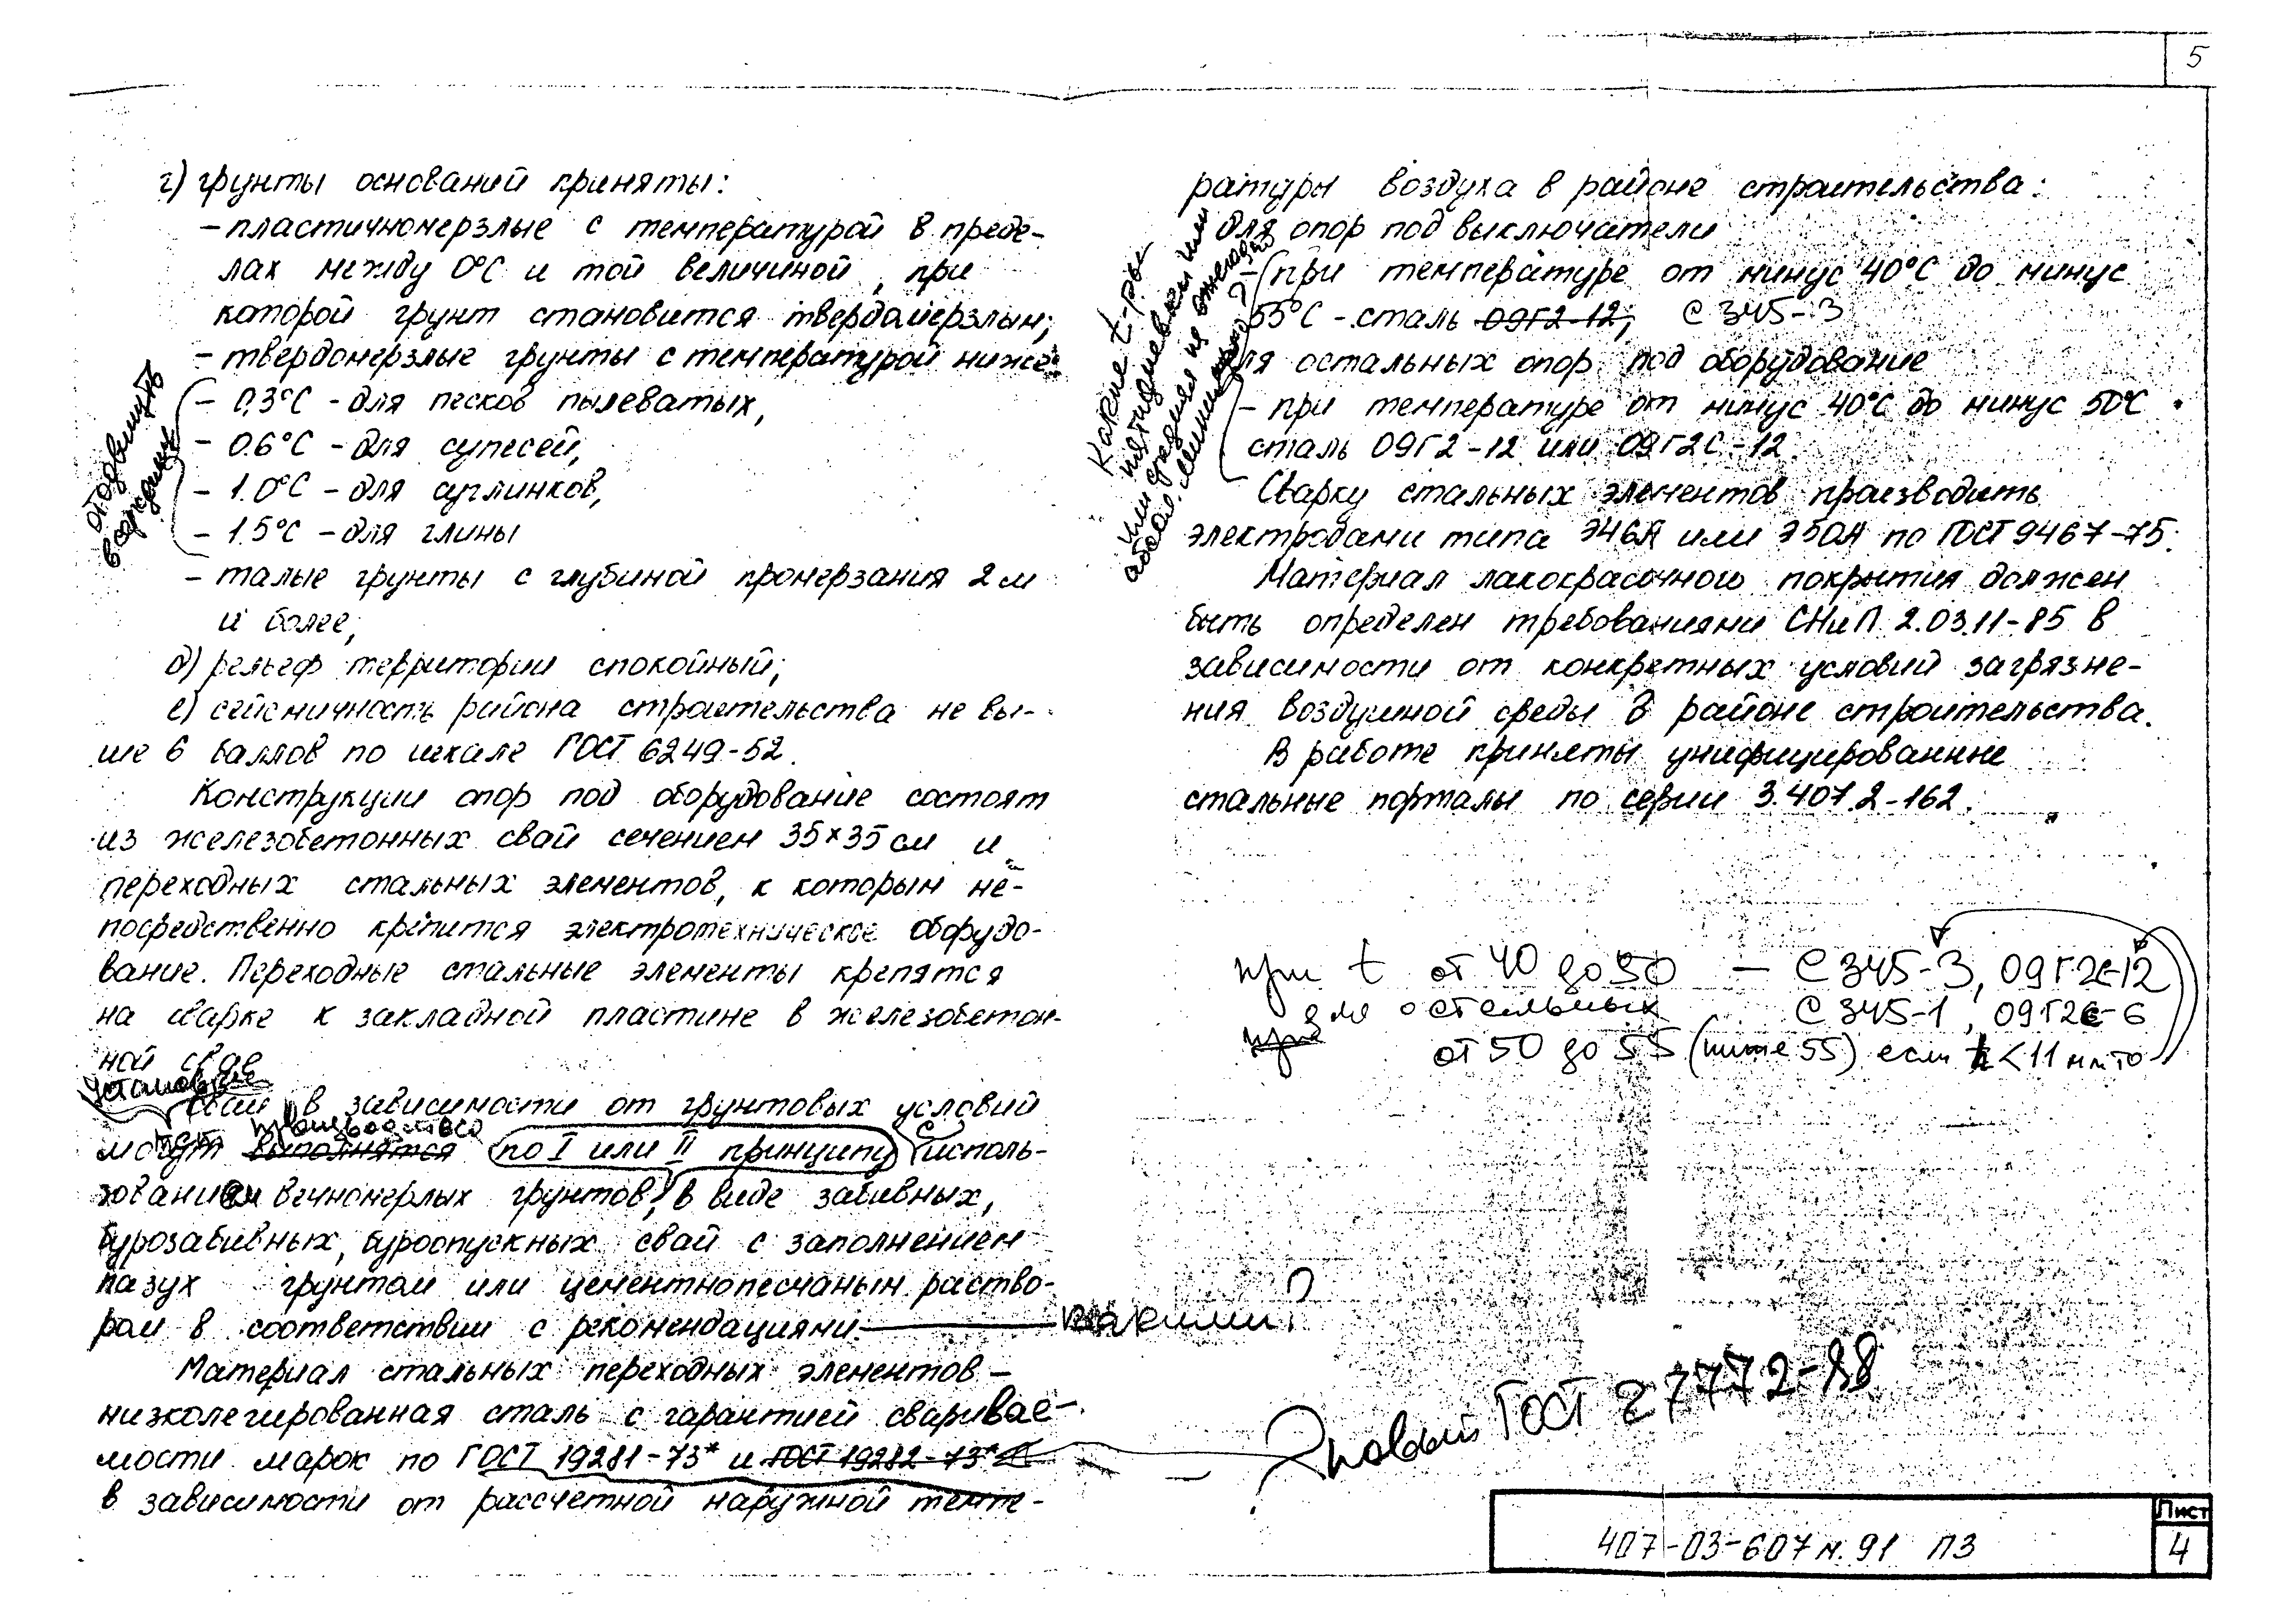 5
г) грунты оснований приняты:
- пластичномерзлые с температурой в преде-
лах между 0°С и той величиной, при
которой грунт становится твердомерзлым;
- твердомерзлые грунты с температурой ниже:
отодвинуть
в середину
- 0,3°С - для песков пылеватых,
- 0.6°С - для супесей,
- 1.0°С - для суглинков,
- 1.5°С - для глины
- талые грунты с глубиной промерзания 2 м
и более;
д) рельеф территории спокойный;
е) сейсмичность района строительства не вы-
ше 6 баллов по шкале ГОСТ 6249-52.
Конструкции опор под оборудование состоят
из железобетонных свай сечением 35×35 см и
переходных стальных элементов, к которым не-
посредственно крепится электротехническое оборудо-
вание. Переходные стальные элементы крепятся
на сварке к закладной пластине в железобетон-
ной свае
Установка
Сваи в зависимости от грунтовых условий
производится
могут выполнятся по I или II принципу с исполь-
зованием вечномерлых грунтов, в виде забивных,
бурозабивных, буроопускных свай с заполнением
пазух грунтом или цементнопесчаным раство-
ром в соответствии с рекомендациями. какими?
Материал стальных переходных элементов -
низколегированная сталь с гарантией сваривае-
мости марок по ГОСТ 19281-73* и ГОСТ 19282-73*
в зависимости от рассчетной наружной темпе-
ратуры воздуха в районе строительства:
для опор под выключатели
- при температуре от минус 40°С до минус
55°С - сталь 09Г2-12; С 345-3
для остальных опор под оборудование
- при температуре от минус 40°С до минус 50°С
сталь 09Г2-12 или 09Г2С-12.
Какие t-ры
пятидневки или
или средняя не ниже
абсол.
Сварку стальных элементов производить
электродами типа Э46А или Э50А по ГОСТ 9467-75.
Материал лакокрасочного покрытия должен
быть определен требованиями СНиП 2.03.11-85 в
зависимости от конкретных условий загрязне-
ния воздушной среды в районе строительства.
В работе приняты унифицированные
стальные порталы по серии 3.407.2-162.
при t от 40 до 50 — С 345-3, 09Г2С-12
для остальных С 345-1, 09Г2С-6
при от 50 до 55 (ниже 55) если t < 11 мм то
? новый ГОСТ 27772-88
407-03-607м.91 ПЗ
Лист
4